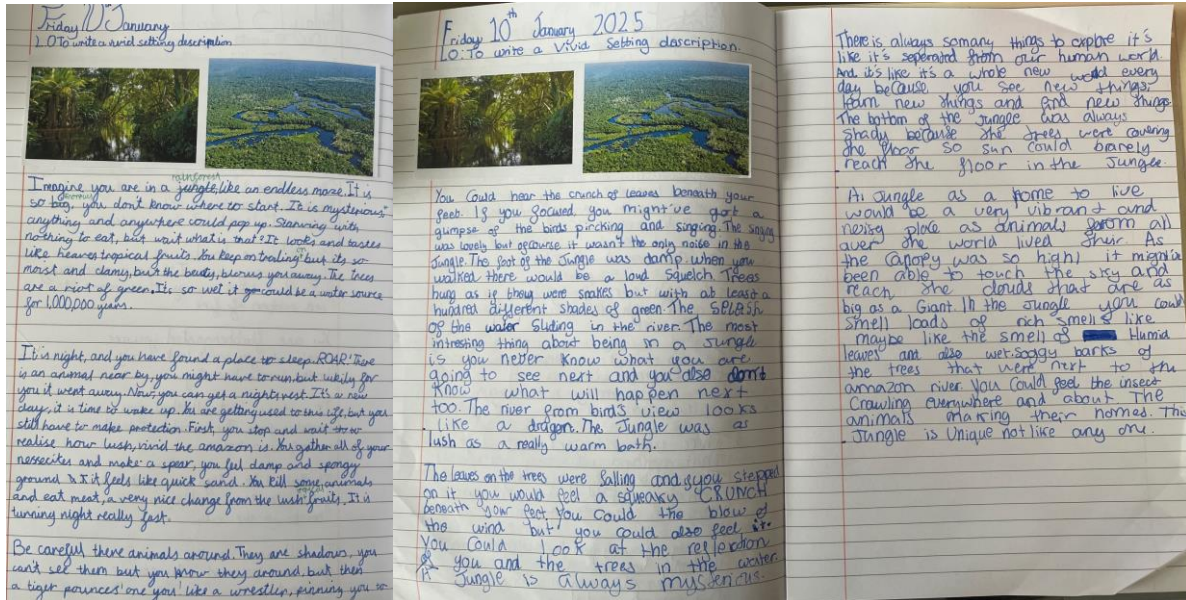 Friday 10th January
LO To write a vivid setting description
rainforest
Imagine you are in a jungle, like an endless maze. It is
so big, you don't know where to start. It is mysterious
anything and anywhere could pop up. Starving with
nothing to eat, but wait what is that? It looks and tastes
like heaven, tropical fruits. You keep on trailing on but its so
moist and clamy, but the beauty, blows you away. The trees
are a riot of green. It's so wet it could be a water source
for 1,000,000 years.
It is night, and you have found a place to sleep. ROAR!
is an animal near by, you might have to run, but luckily for
you it went away. Now, you can get a nights rest. It's a new
day, it is time to wake up. You are getting used to this life, but you
still have to make protection. First, you stop and wait to
realise how lush, vivid the amazon is. You gather all of your
nessecites and make a spear, you feel damp and spongy
ground it feels like quick sand. You kill some animals
and eat meat, a very nice change from the lush fruits. It is
turning night really fast.
Be careful there animals around. They are shadows, you
can't see them but you know they around. but then
a tiger pounces one you like a wrestler, pinning you so
Friday 10th January 2025
LO: To write a vivid setting description.
You could hear the crunch of leaves beneath your
feet. If you focused, you might've got a
glimpse of the birds pircking and singing. The singing
was lovely but ofcourse it wasn't the only noise in the
Jungle. The foot of the Jungle was damp. when you
walked there would be a loud squelch. Trees
hung as if they were snakes but with at least a
hundred different shades of green. The SPLASH
of the water sliding in the river. The most
intresting thing about being in a Jungle
is you never know what you are
going to see next and you also don't
know what will happen next
too. The river from birds view looks
like a dragon. The Jungle was as
lush as a really warm bath.
The leaves on the trees were falling and if you stepped
on it you would feel a squeaky CRUNCH
beneath your feet. You could the blow of
the wind but you could also feel it.
You could look at the reflection
of you and the trees in the water.
A Jungle is always mysterious.
There is always so many things to explore it's
like it's seperated from our human world.
And it's like it's a whole new world every
day because you see new things,
learn new things and find new things.
The bottom of the Jungle was always
shady because the trees were covering
the floor so sun could barely
reach the floor in the Jungle.
A Jungle as a home to live
would be a very vibrant and
noisy place as animals from all
over the world lived their. As
the canopy was so high, it might've
been able to touch the sky and
reach the clouds that are as
big as a Giant. In the Jungle you could
smell loads of rich smells like
maybe like the smell of Humid
leaves and also wet, soggy barks of
the trees that were next to the
amazon river. You could feel the insect
crawling everywhere and about. The
animals making their homes. This
Jungle is unique not like any one.